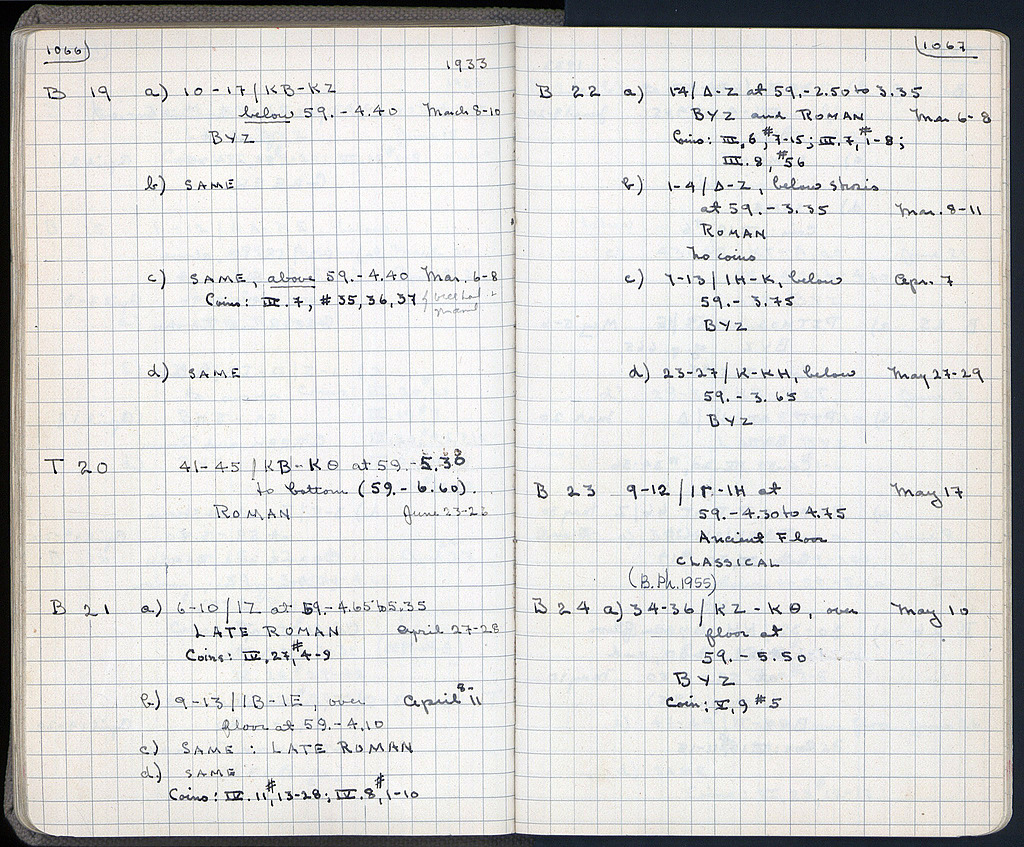 1066
1933
B 19 a) 10-17/KB-KZ
below 59.-4.40 March 8-10
BYZ
b) SAME
c) SAME, above 59.-4.40 Mar. 6-8
Coins: III.7, #35,36,37
d) SAME
T 20 41-45/KB-KΘ at 59.-5.30
to bottom (59.-6.60).
ROMAN June 23-26
B 21 a) 6-10/IZ at 59.-4.65 to 5.35
LATE ROMAN April 27-28
Coins: IV.27,#4-9
b) 9-13/IB-IE, over April 8-11
floor at 59.-4.10
c) SAME : LATE ROMAN
d) SAME
Coins: IV.11,#13-28; IV.8,#1-10
1067
B 22 a) 1-4/Δ-Z at 59.-2.50 to 3.35
BYZ and ROMAN Mar 6-8
Coins: III.6,#7-15; III.7,#1-8;
III.8,#56
b) 1-4/Δ-Z, below
at 59.-3.35 Mar. 8-11
ROMAN
No coins
c) 7-13/IH-K, below Apr. 7
59.-3.75
BYZ
d) 23-27/K-KH, below May 27-29
59.-3.65
BYZ
B 23 9-12/IΓ-IH at May 17
59.-4.30 to 4.75
Ancient Floor
CLASSICAL
(B.Ph.1955)
B 24 a) 34-36/KZ-KΘ, over May 10
floor at
59.-5.50
BYZ
Coin: V,9 #5